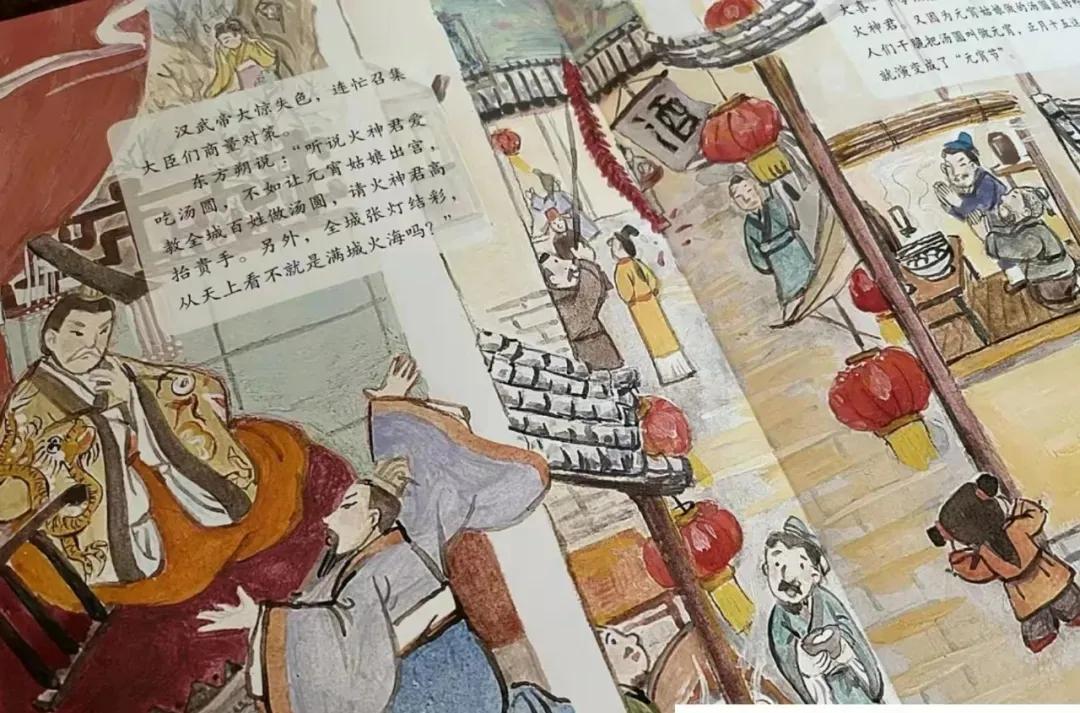 汉武帝大惊失色，连忙召集
大臣们商量对策。
东方朔说：“听说火神君爱
吃汤圆，不如让元宵姑娘出宫，
教全城百姓做汤圆，请火神君高
抬贵手。另外，全城张灯结彩，
从天上看不就是满城火海吗？”
酒
大喜
火神君，又因为元宵姑娘做的汤圆最好
人们干脆把汤圆叫做元宵，正月十五这
就演变成了“元宵节”